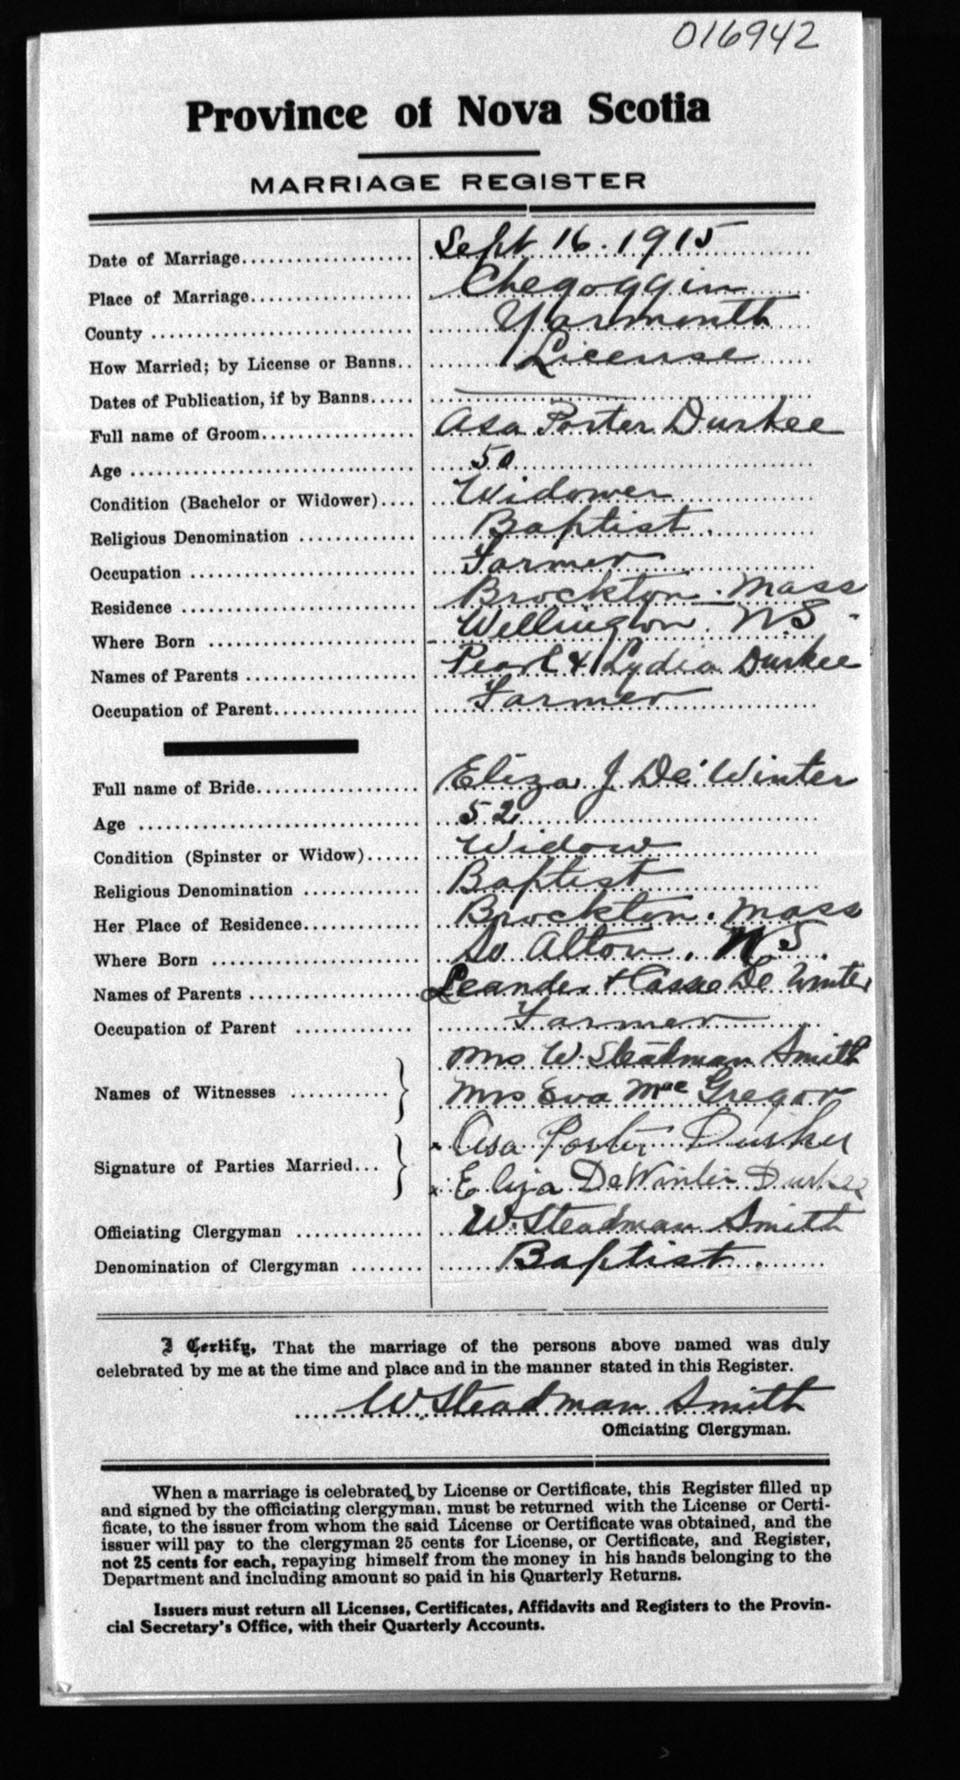 016942
Province of Nova Scotia
MARRIAGE REGISTER
Date of Marriage.................... Sept 16. 1915
Place of Marriage................... Chegoggin
County ............................. Yarmouth
How Married; by License or Banns.. License
Dates of Publication, if by Banns.....
Full name of Groom................. Asa Porter Durkee
Age ............................... 50
Condition (Bachelor or Widower).... Widower
Religious Denomination ............. Baptist.
Occupation ......................... Farmer
Residence .......................... Brockton. Mass
Where Born ......................... Wellington. N.S
Names of Parents ................... Pearl & Lydia Durkee
Occupation of Parent................ Farmer
Full name of Bride.................. Eliza J De'Winter
Age ................................ 52
Condition (Spinster or Widow)...... Widow
Religious Denomination ............. Baptist
Her Place of Residence.............. Brockton. Mass
Where Born ......................... So Alton. N S.
Names of Parents ................... Leander & De Winter
Occupation of Parent ............... Farmer
Names of Witnesses ........... } Mrs W. Steadman Smith
Mrs Eva MacGregor
Signature of Parties Married... } x Asa Porter Durkee
x Eliza DeWinter Durkee
Officiating Clergyman .............. W. Steadman Smith
Denomination of Clergyman ........ Baptist.
I Certify, That the marriage of the persons above named was duly
celebrated by me at the time and place and in the manner stated in this Register.
W. Steadman Smith
Officiating Clergyman.
When a marriage is celebrated by License or Certificate, this Register filled up
and signed by the officiating clergyman, must be returned with the License or Certi-
ficate, to the issuer from whom the said License or Certificate was obtained, and the
issuer will pay to the clergyman 25 cents for License, or Certificate, and Register,
not 25 cents for each, repaying himself from the money in his hands belonging to the
Department and including amount so paid in his Quarterly Returns.
Issuers must return all Licenses, Certificates, Affidavits and Registers to the Provin-
cial Secretary's Office, with their Quarterly Accounts.